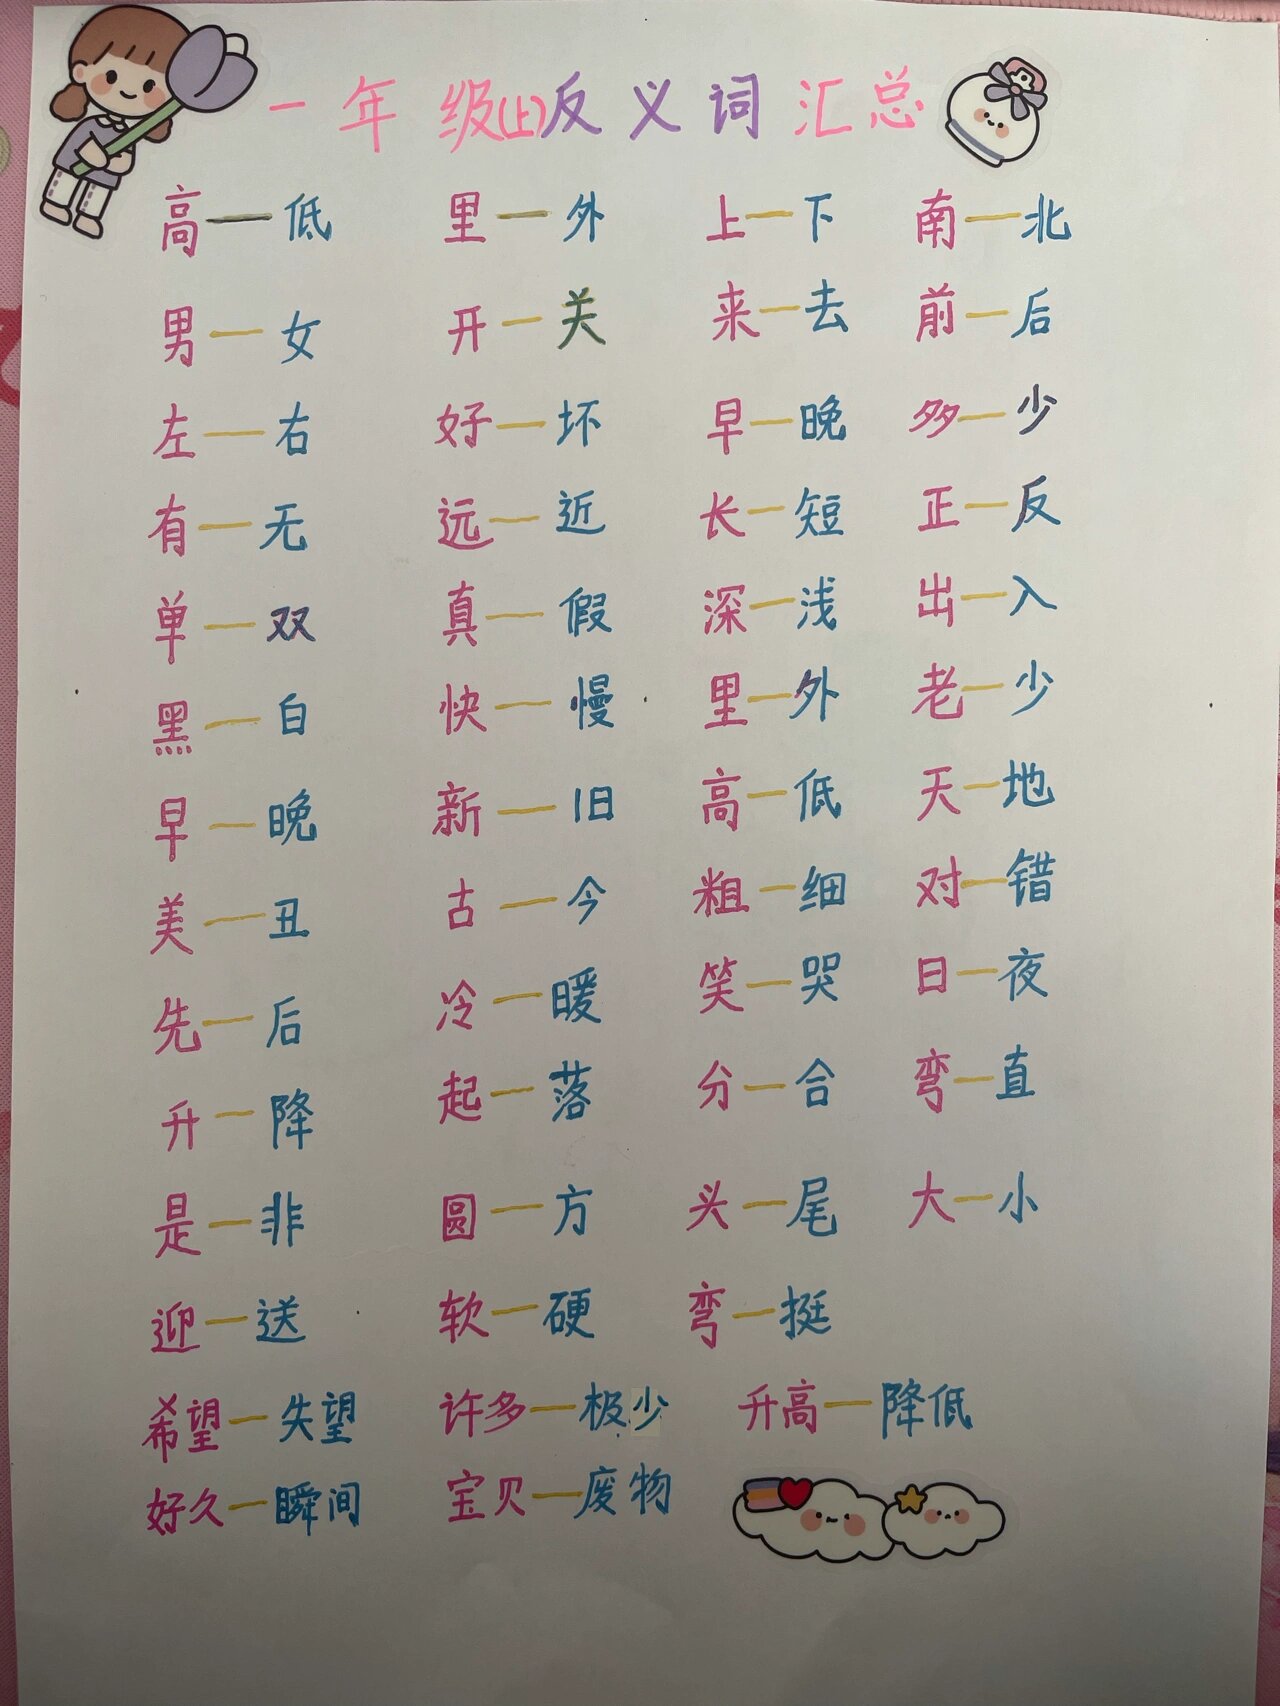 一年级(上)反义词汇总
高—低 里—外 上—下 南—北
男—女 开—关 来—去 前—后
左—右 好—坏 早—晚 多—少
有—无 远—近 长—短 正—反
单—双 真—假 深—浅 出—入
黑—白 快—慢 里—外 老—少
早—晚 新—旧 高—低 天—地
美—丑 古—今 粗—细 对—错
先—后 冷—暖 笑—哭 日—夜
升—降 起—落 分—合 弯—直
是—非 圆—方 头—尾 大—小
迎—送 软—硬 弯—挺
希望—失望 许多—极少 升高—降低
好久—瞬间 宝贝—废物